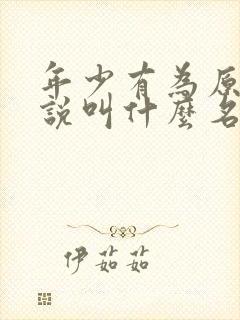 年少有為原
說叫什麼名
伊茹茹